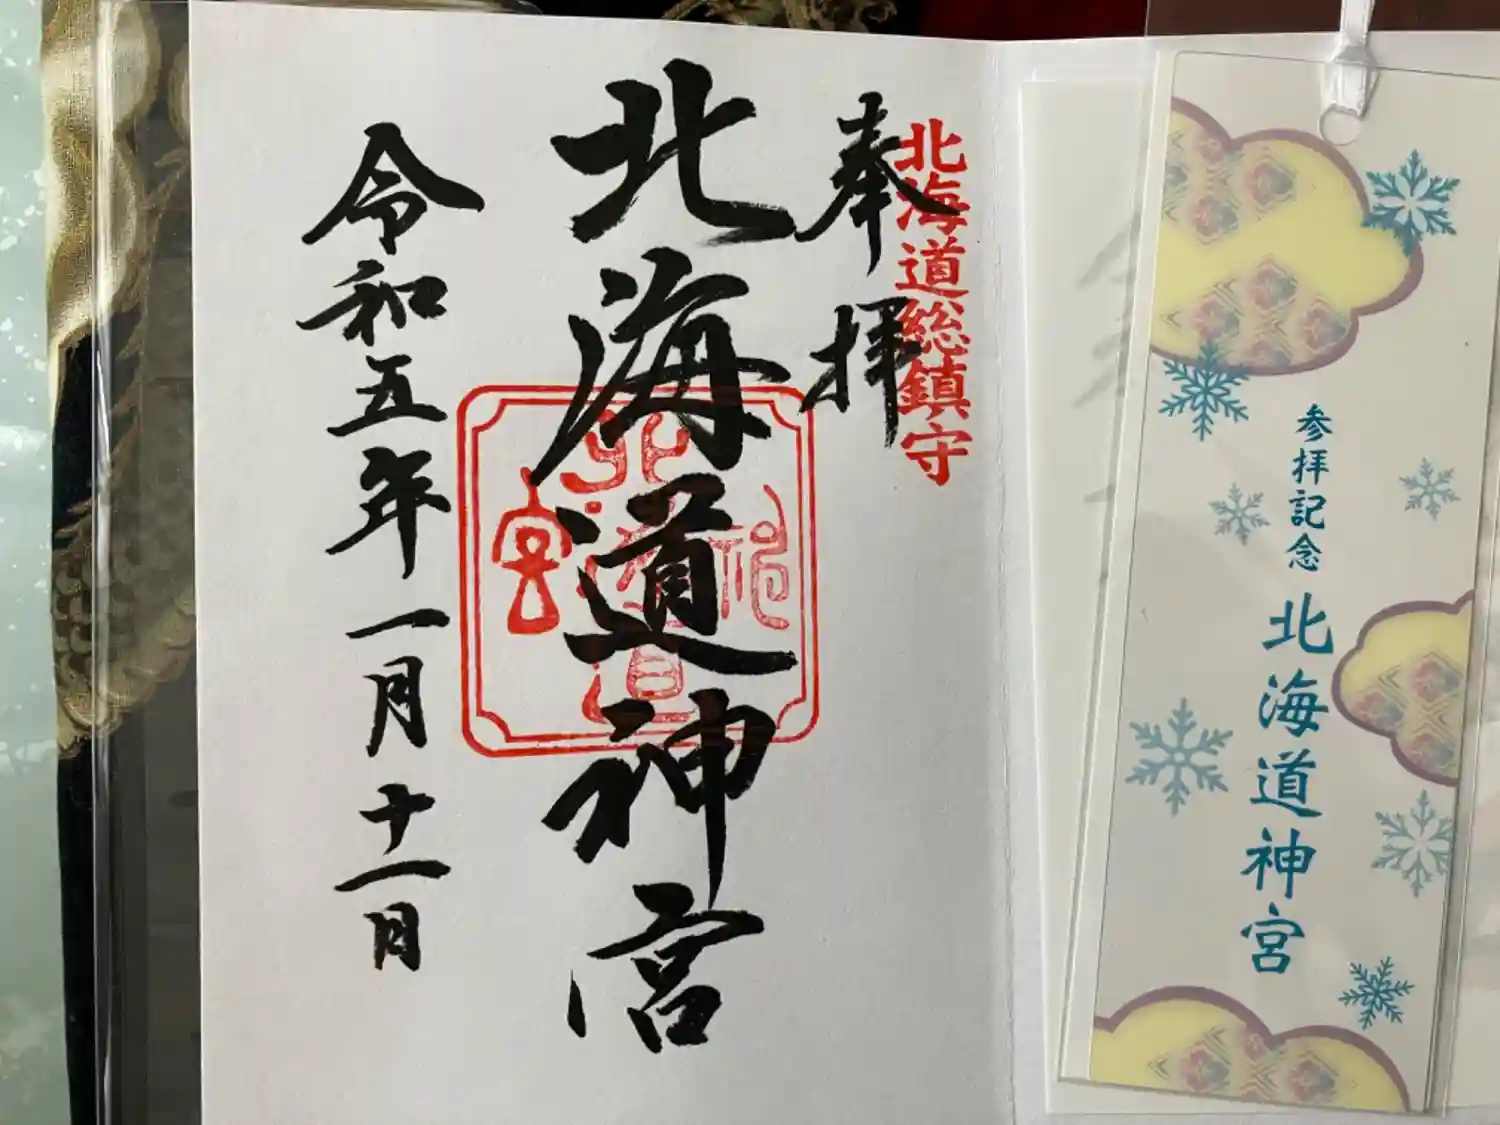 北海道総鎮守
奉拝
北海道神宮
令和五年一月十一日
参拝記念
北海道神宮